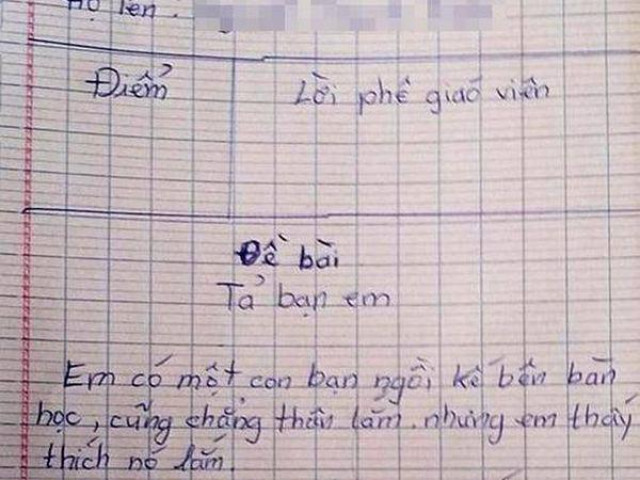 Họ tên.
Điểm
Lời phê giáo viên
Đề bài
Tả bạn em
Em có một con bạn ngồi kế bên bàn
học, cũng chẳng thân lắm. nhưng em thấy
thích nó lắm.